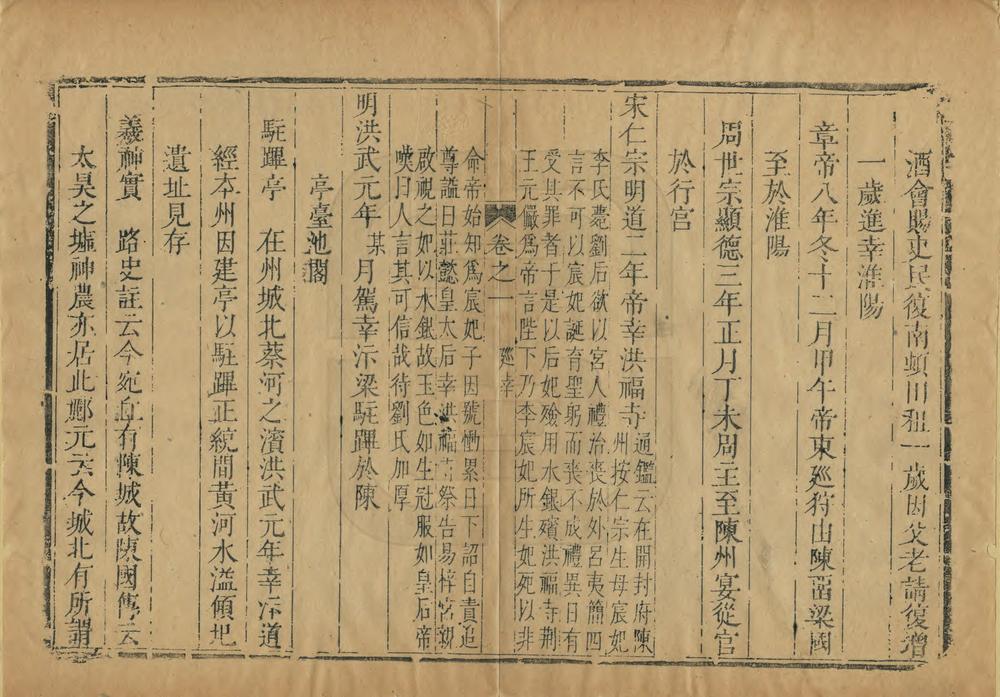 酒會賜吏民復南頓田租一歲因父老請復增
一歲進幸淮陽
章帝八年冬十二月甲午帝東廵狩出陳畱梁國
至於淮陽
周世宗顯德三年正月丁未周主至陳州宴從官
於行宫
宋仁宗明道二年帝幸洪福寺通鑑云在開封府陳
州按仁宗生母宸妃
李氏薨劉后欲以宮人禮治喪於外呂夷簡四
言不可以宸妃誕育聖躬而喪不成禮異日有
受其罪者于是以后妃殮用水銀殯洪福寺荆
王元儼爲帝言陛下乃李宸妃所生妃死以非
卷之一 廵幸
命帝始知爲宸妃子因號慟累日下詔自責追
尊謚曰莊懿皇太后幸洪福寺祭告易梓宮親
啟視之如以水銀故玉色如生冠服如皇后帝
嘆曰人言其可信哉待劉氏加厚
明洪武元年某月駕幸汴梁駐蹕於陳
亭臺池閣
駐蹕亭 在州城北蔡河之濱洪武元年幸汴道
經本州因建亭以駐蹕正統間黃河水溢傾圯
遺址見存
羲神實 路史註云今宛丘有陳城故陳國傳云
太昊之墟神農亦居此酈元云今城北有所謂